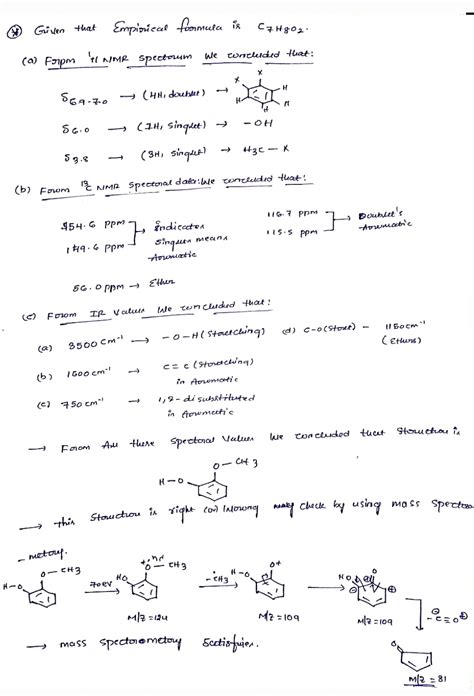 (*) Given that Empirical formula is C7H8O2.
(a) From 1H NMR spectrum We concluded that:
δ6.9-7.0 → (4H, doublet) →
X X H H H H
δ6.0 → (1H, singlet) → -OH
δ3.8 → (3H, singlet) → H3C - X
(b) From 13C NMR spectral data: We concluded that:
154.6 ppm
149.6 ppm
→ indicates singlets means Aromatic
116.7 ppm
115.5 ppm
→ Doublet's Aromatic
56.0 ppm → Ether
(c) From IR Values We concluded that:
(a) 3500 cm-1 → -O-H (Stretching) (d) C-O (Stret) - 1150 cm-1 (Ethers)
(b) 1600 cm-1 → C=C (Stretching) in Aromatic
(c) 750 cm-1 → 1,2-disubstituted in Aromatic
→ From All these Spectral Values We concluded that Structure is
O-CH3
H-O
→ this Structure is right (or) wrong may check by using mass Spectro
-metry.
H-O O-CH3 70eV HO O-CH3 -CH3 H-O O+ HO
M/Z=124 M/Z=109 M/Z=109 -C≡O
→ mass spectrometry Satisfies.
O
M/Z=81